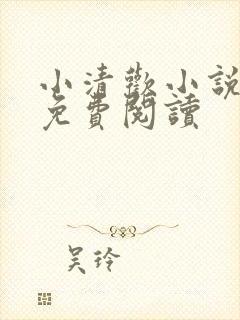 小清歡小說
免費閱讀
吴玲